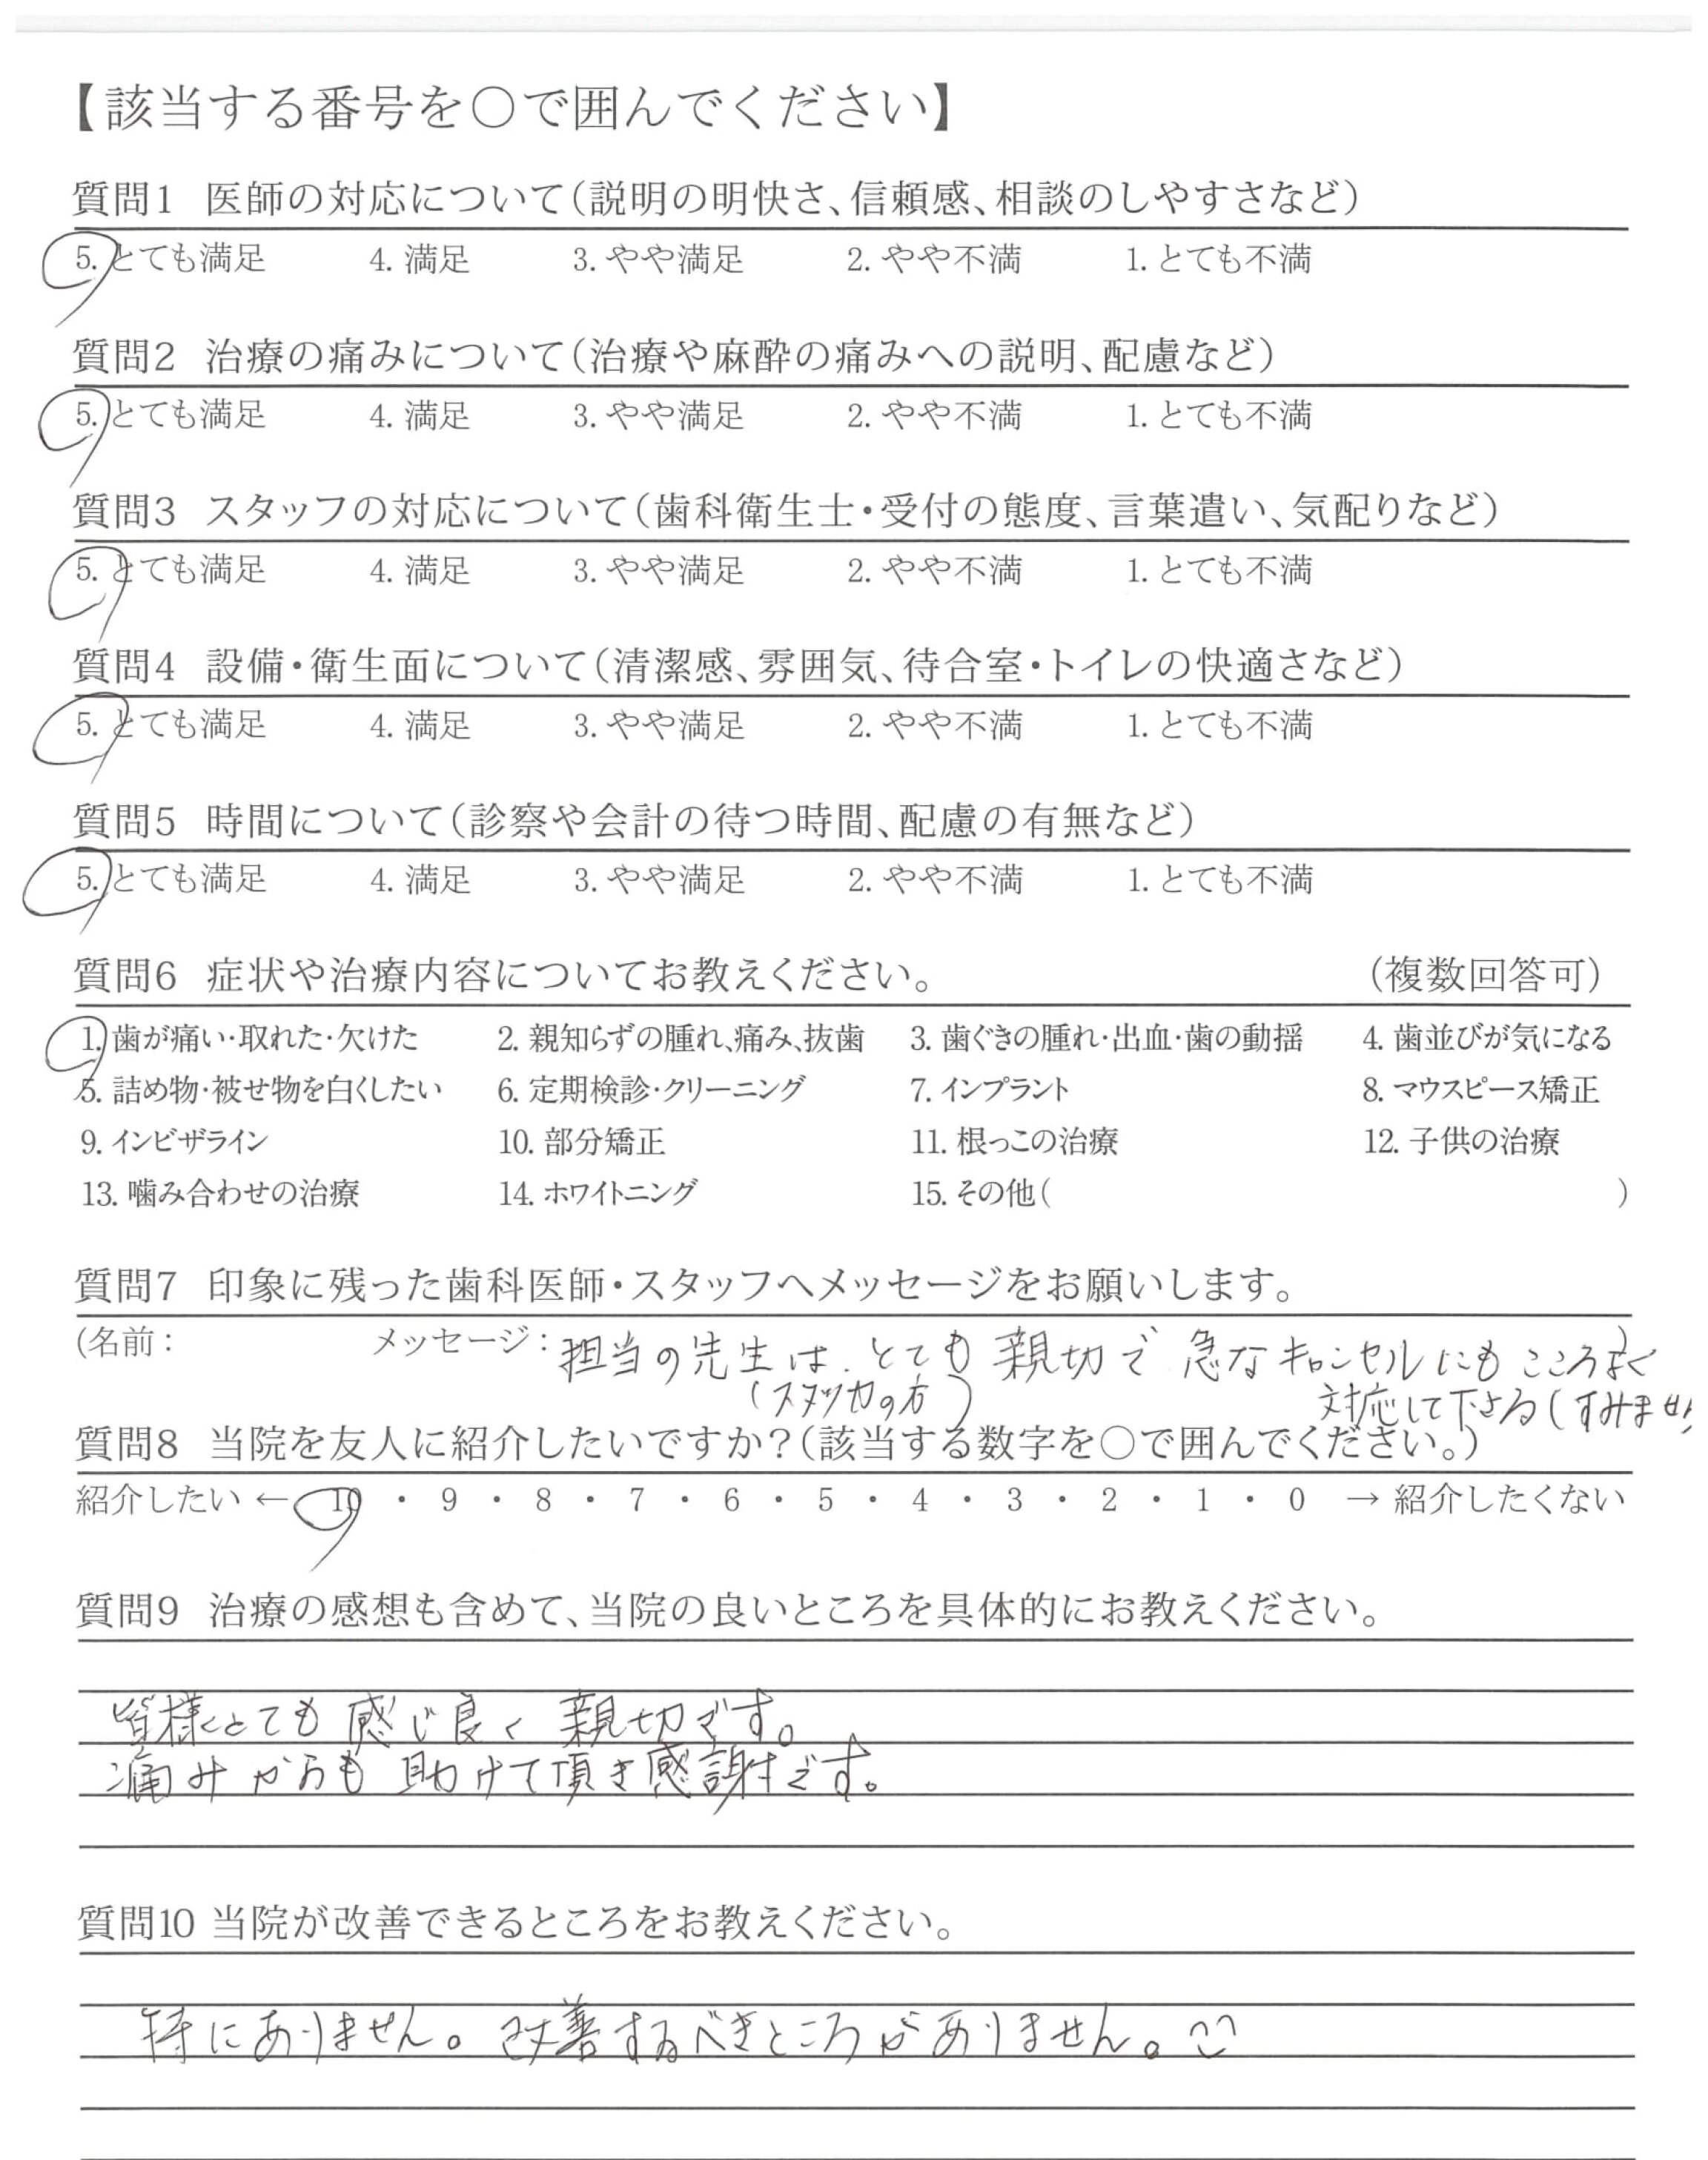 【該当する番号を○で囲んでください】
質問1 医師の対応について(説明の明快さ、信頼感、相談のしやすさなど)
5. とても満足 4. 満足 3. やや満足 2. やや不満 1. とても不満
質問2 治療の痛みについて(治療や麻酔の痛みへの説明、配慮など)
5. とても満足 4. 満足 3. やや満足 2. やや不満 1. とても不満
質問3 スタッフの対応について(歯科衛生士・受付の態度、言葉遣い、気配りなど)
5. とても満足 4. 満足 3. やや満足 2. やや不満 1. とても不満
質問4 設備・衛生面について(清潔感、雰囲気、待合室・トイレの快適さなど)
5. とても満足 4. 満足 3. やや満足 2. やや不満 1. とても不満
質問5 時間について(診察や会計の待つ時間、配慮の有無など)
5. とても満足 4. 満足 3. やや満足 2. やや不満 1. とても不満
質問6 症状や治療内容についてお教えください。 (複数回答可)
1. 歯が痛い・取れた・欠けた 2. 親知らずの腫れ、痛み、抜歯 3. 歯ぐきの腫れ・出血・歯の動揺 4. 歯並びが気になる
5. 詰め物・被せ物を白くしたい 6. 定期検診・クリーニング 7. インプラント 8. マウスピース矯正
9. インビザライン 10. 部分矯正 11. 根っこの治療 12. 子供の治療
13. 噛み合わせの治療 14. ホワイトニング 15. その他( )
質問7 印象に残った歯科医師・スタッフへメッセージをお願いします。
(名前: メッセージ: 担当の先生は、とても親切で急なキャンセルにもこころよく )
(スタッフの方) 対応して下さる(すみませ
質問8 当院を友人に紹介したいですか?(該当する数字を○で囲んでください。)
紹介したい ← 10 ・ 9 ・ 8 ・ 7 ・ 6 ・ 5 ・ 4 ・ 3 ・ 2 ・ 1 ・ 0 → 紹介したくない
質問9 治療の感想も含めて、当院の良いところを具体的にお教えください。
皆様とても感じ良く親切です。
痛みからも助けて頂き感謝です。
質問10 当院が改善できるところをお教えください。
特にありません。改善するべきところがありません。